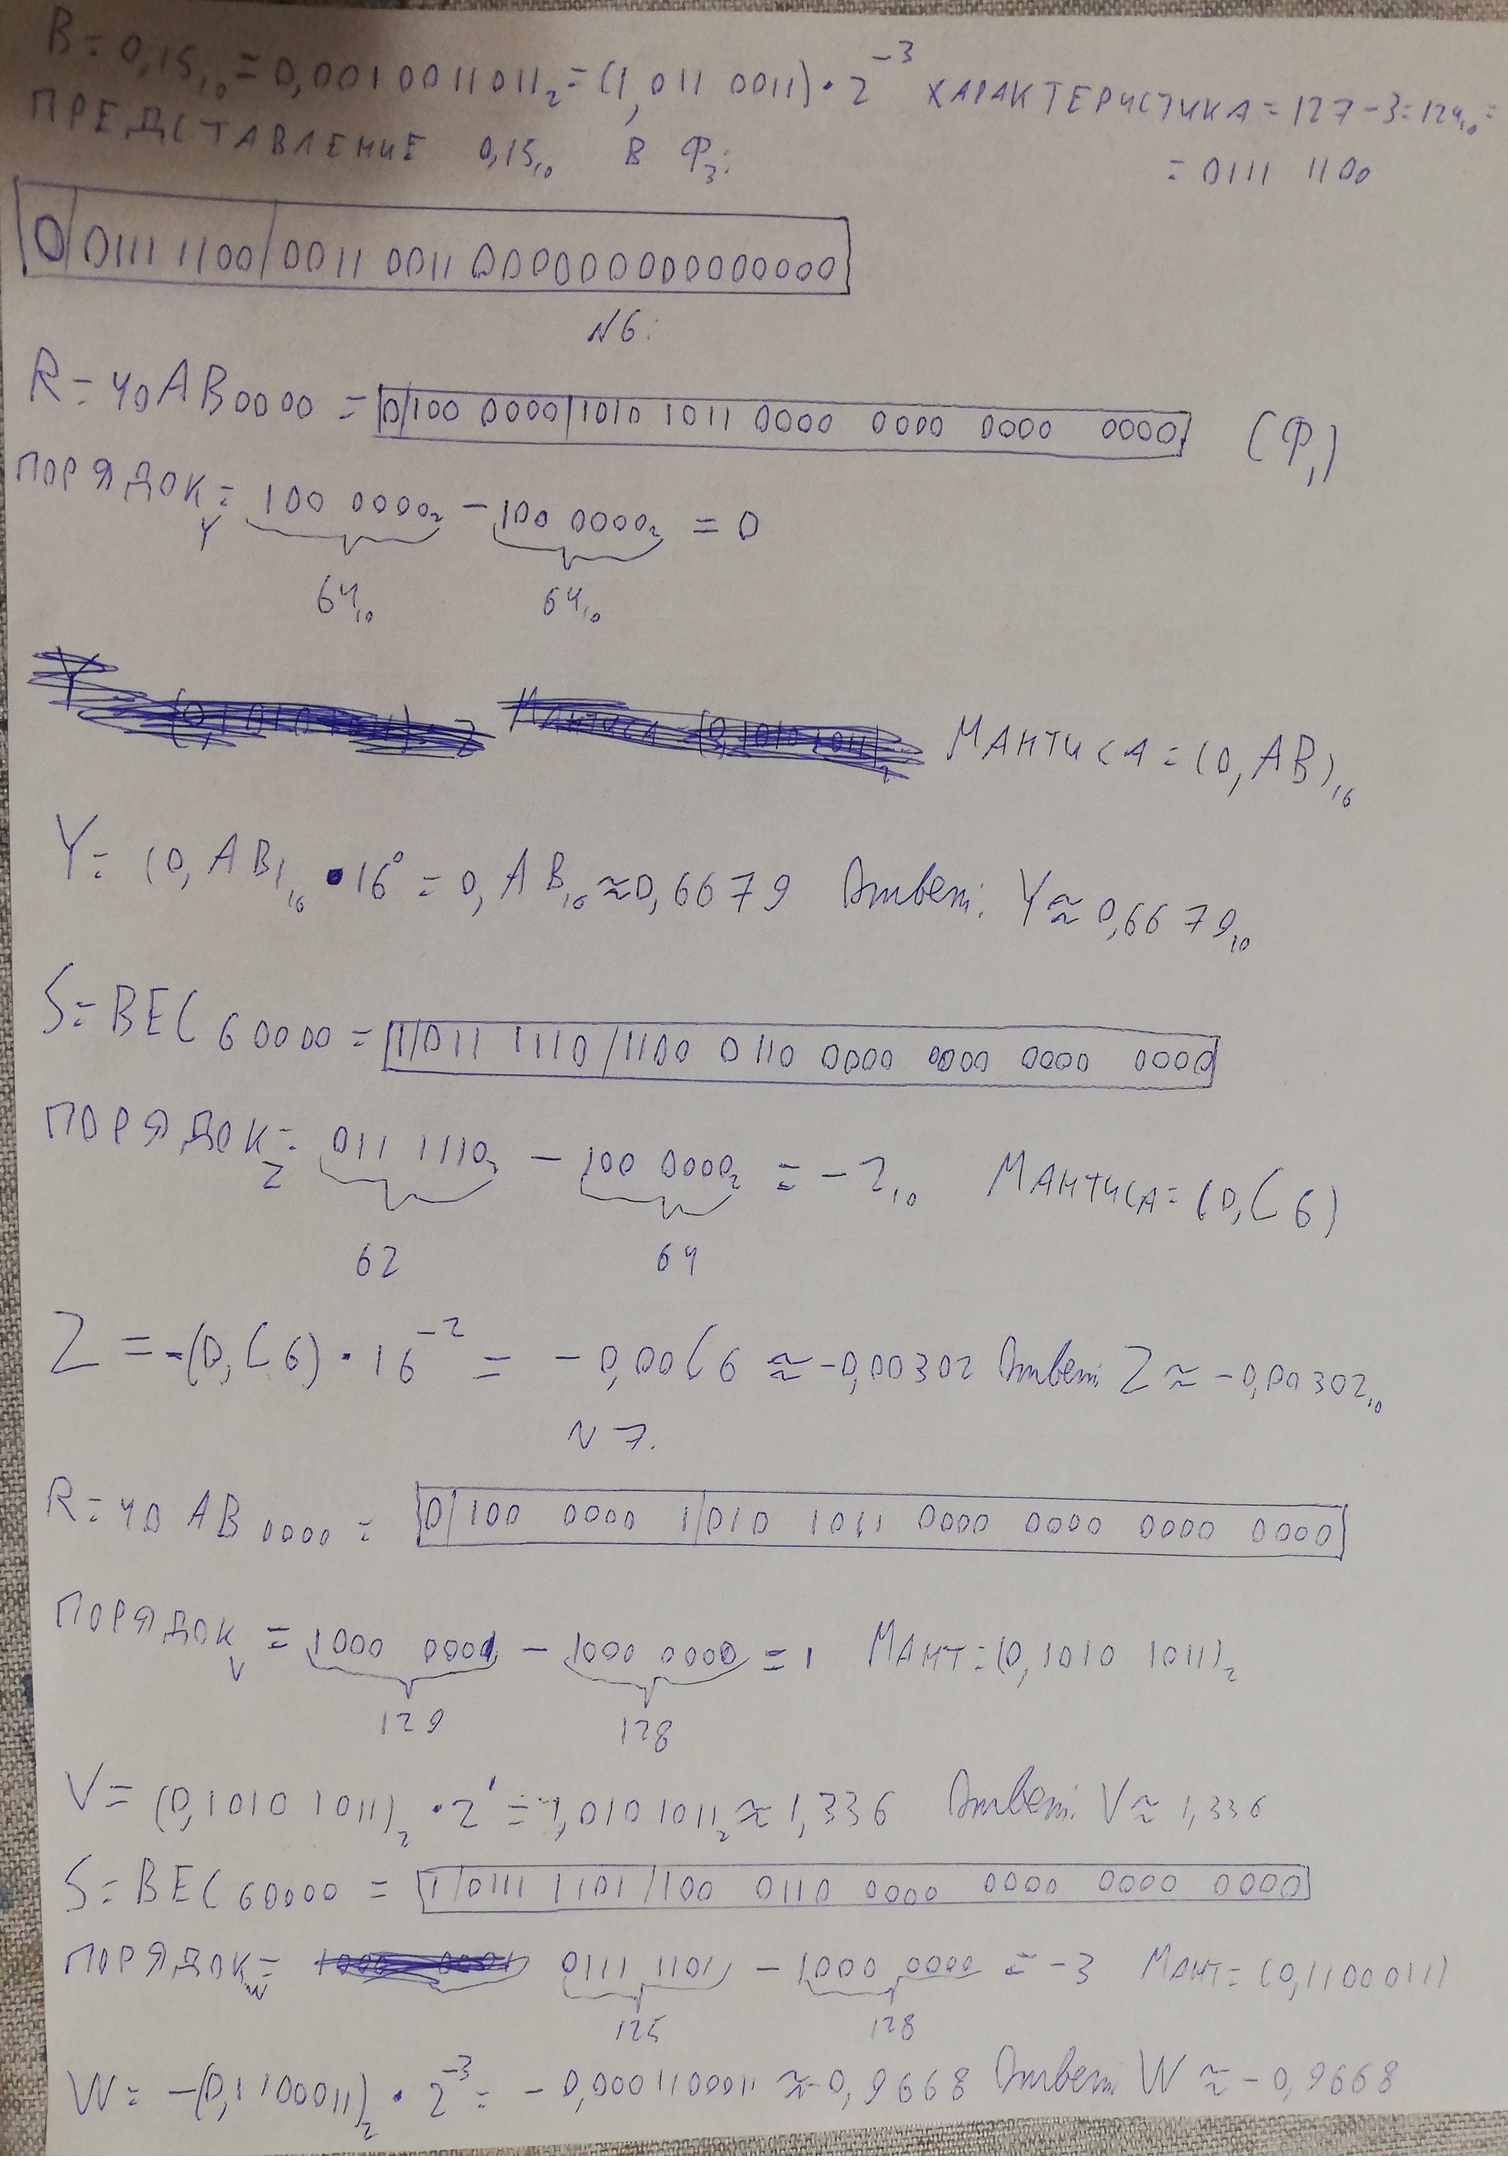 В = 0,15₁₀ = 0,0010011011₂ = (1,011 0011) · 2⁻³ ХАРАКТЕРИСТИКА = 127 - 3 = 124₁₀ =
= 0111 1100
ПРЕДСТАВЛЕНИЕ 0,15₁₀ В Ф₃:
0 | 0111 1100 | 0011 0011 000000000000000
N6:
R = 40AB0000 = 0 | 100 0000 | 1010 1011 0000 0000 0000 0000 (Ф₁)
ПОРЯДОК_Y = 100 0000₂ - 100 0000₂ = 0
64₁₀ 64₁₀
МАНТИСА = (0,AB)₁₆
Y = (0,AB)₁₆ · 16⁰ = 0,AB₁₆ ≈ 0,6679 Ответ: Y ≈ 0,6679₁₀
S = BEC60000 = 1 | 011 1110 | 1100 0110 0000 0000 0000 0000
ПОРЯДОК_Z = 011 1110₂ - 100 0000₂ = -2₁₀ МАНТИСА = (0,C6)
62 64
Z = -(0,C6) · 16⁻² = -0,00C6 ≈ -0,00302 Ответ: Z ≈ -0,00302₁₀
N 7.
R = 40 AB 0000 = 0 | 100 0000 1 | 010 1011 0000 0000 0000 0000
ПОРЯДОК_V = 1000 0001 - 1000 0000 = 1 МАНТ = (0,1010 1011)₂
129 128
V = (0,1010 1011)₂ · 2¹ = 1,0101011₂ ≈ 1,336 Ответ: V ≈ 1,336
S = BEC60000 = 1 | 0111 1101 | 100 0110 0000 0000 0000 0000
ПОРЯДОК_W = 0111 1101 - 1000 0000 = -3 МАНТ = (0,1100011)
125 128
W = -(0,1100011)₂ · 2⁻³ = -0,0001100011 ≈ -0,9668 Ответ W ≈ -0,9668